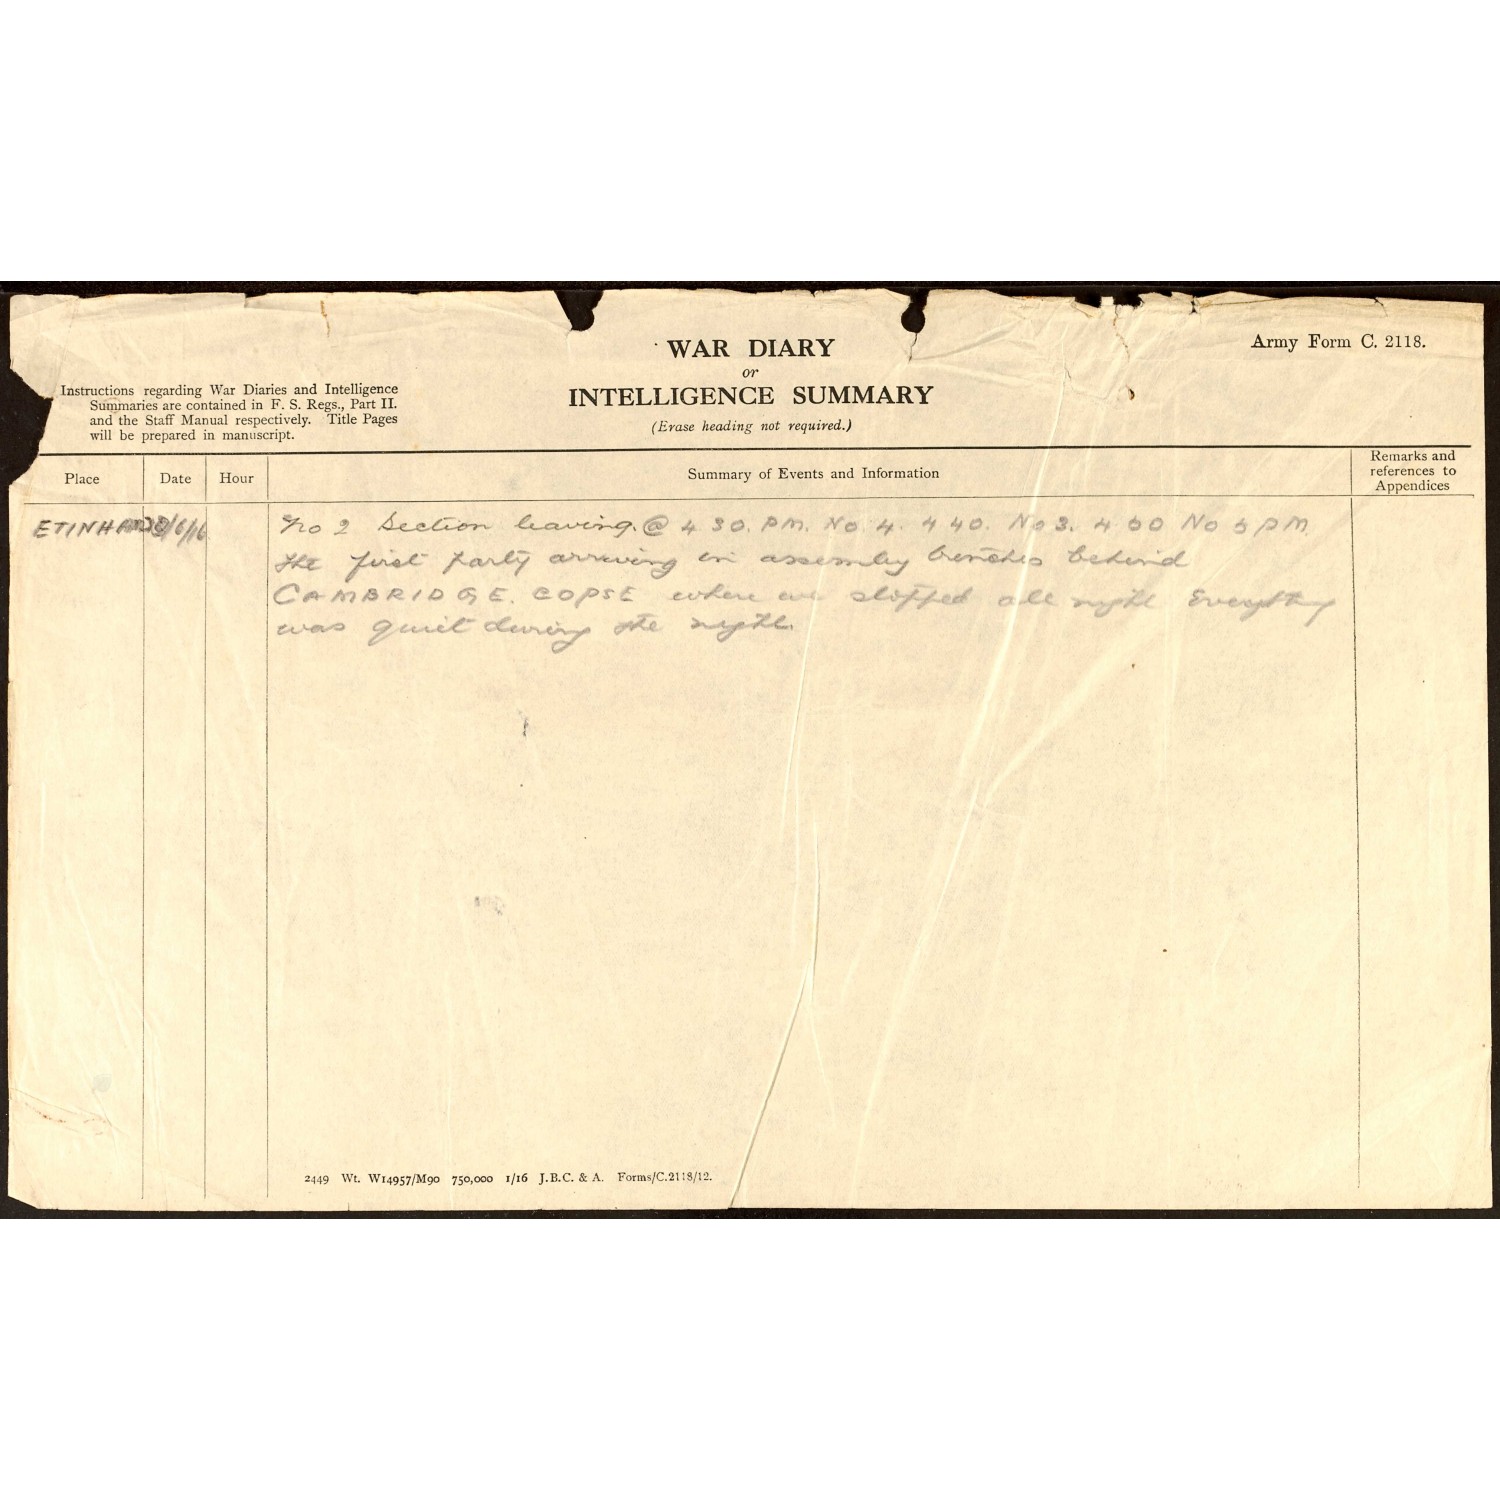 WAR DIARY
or
INTELLIGENCE SUMMARY
(Erase heading not required.)
Army Form C. 2118.
Instructions regarding War Diaries and Intelligence
Summaries are contained in F. S. Regs., Part II.
and the Staff Manual respectively. Title Pages
will be prepared in manuscript.
Place Date Hour Summary of Events and Information Remarks and references to Appendices
No 2 Section leaving. @ 4 30. PM. No. 4. 4 40. No 3. 4 50 No 5 PM.
the first party arriving in assembly trenches behind
CAMBRIDGE. COPSE where we stopped all night Everything
was quiet during the night.
2449 Wt. W14957/M90 750,000 1/16 J.B.C. & A. Forms/C.2118/12.